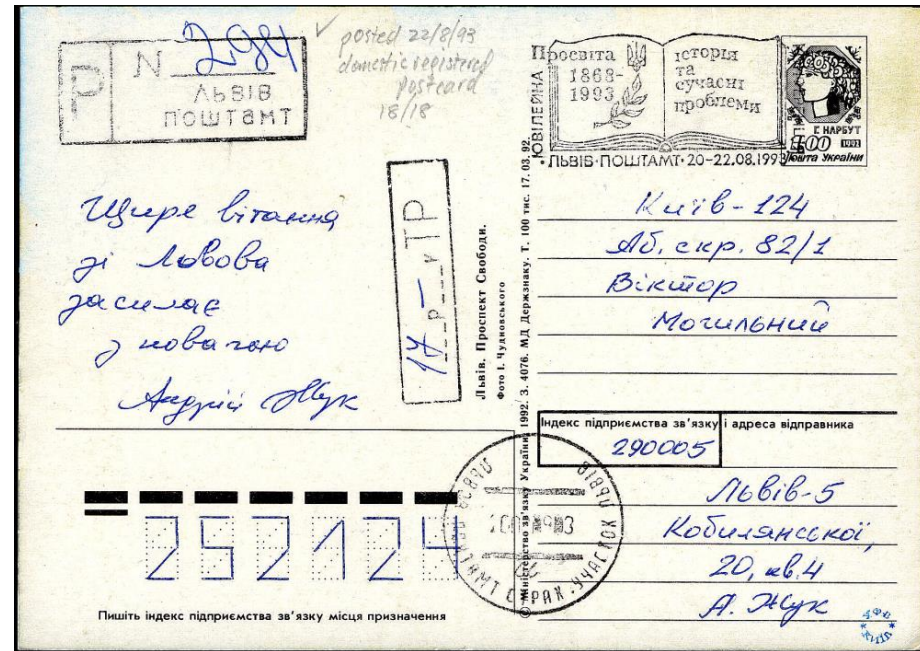 Р
N 294
ЛЬВІВ
ПОШТАМТ
posted 22/8/93
domestic registered
postcard
18/18
ЮВІЛЕЙНА
Просвіта
1868-
1993
історія
та
сучасні
проблеми
• ЛЬВІВ • ПОШТАМТ • 20-22.08.1993
Г. НАРБУТ
1992
Пошта України
Щире вітання
зі Львова
засилає
з повагою
Андрій Жук
17 — р — v ТР
Львів. Проспект Свободи.
Фото І. Чудновського
© Міністерство зв'язку України. 1992. З. 4076. МД Держзнаку. Т. 100 тис. 17. 03. 92.
Київ-124
Аб. скр. 82/1
Віктор
Могильний
Індекс підприємства зв'язку і адреса відправника
290005
Львів-5
Кобилянської,
20, кв. 4
А. Жук
252124
Пишіть індекс підприємства зв'язку місця призначення